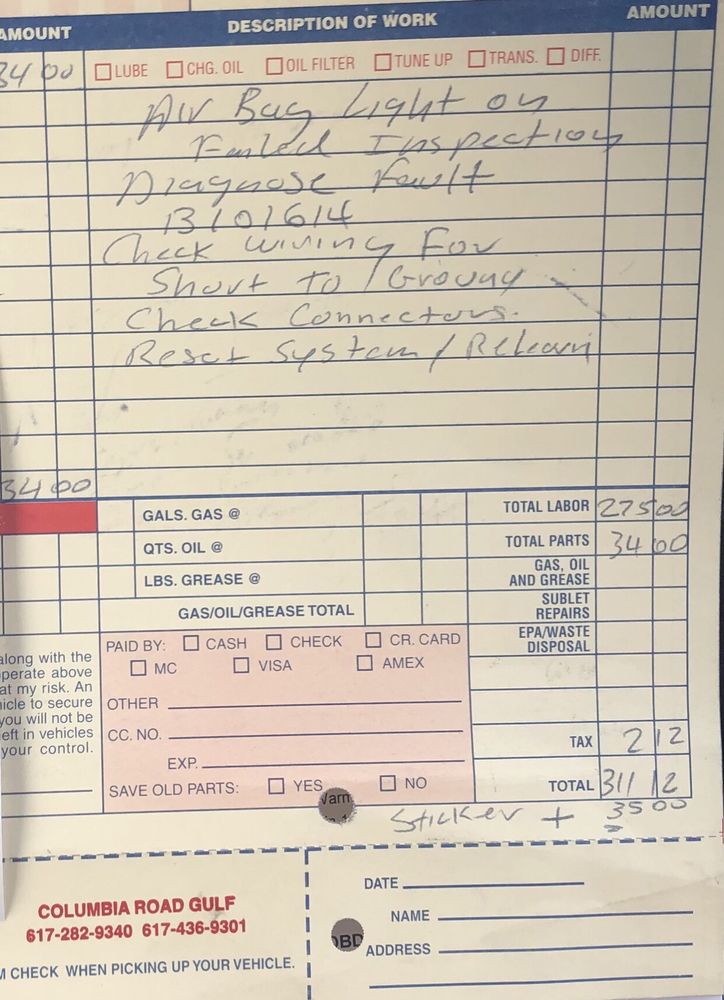 AMOUNT DESCRIPTION OF WORK AMOUNT
34 00 LUBE CHG. OIL OIL FILTER TUNE UP TRANS. DIFF.
Air Bag Light on
Failed Inspection
Diagnose Fault
13101614
Check wiring For
Short To / Ground
Check Connectors.
Reset System / Relearn
34 00
GALS. GAS @ TOTAL LABOR 275 00
QTS. OIL @ TOTAL PARTS 34 00
LBS. GREASE @ GAS, OIL AND GREASE
GAS/OIL/GREASE TOTAL SUBLET REPAIRS
EPA/WASTE DISPOSAL
along with the
perate above
at my risk. An
icle to secure
you will not be
eft in vehicles
your control.
PAID BY: CASH CHECK CR. CARD
MC VISA AMEX
OTHER
CC. NO.
EXP.
SAVE OLD PARTS: YES NO
TAX 2 12
TOTAL 311 12
Sticker + 35 00
Varn
COLUMBIA ROAD GULF
617-282-9340 617-436-9301
M CHECK WHEN PICKING UP YOUR VEHICLE.
DATE
NAME
OBD
ADDRESS